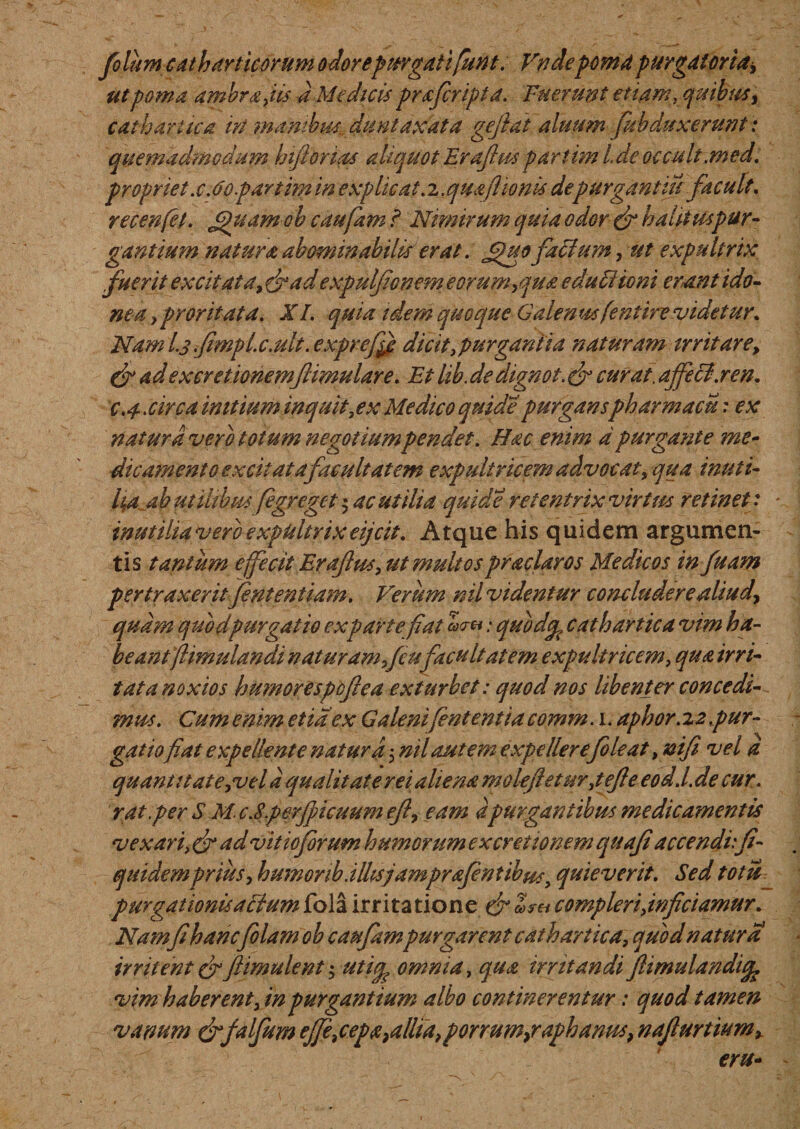 ſolùm catharticorum odore purgati ſunt. Vnde poma purgatoria,
ut poma ambræ, iis à Medicis præſcripta. Fuerunt etiam, quibus,
cathartica in manibus duntaxata geſtat aluum ſubduxerunt:
quemadmodum hiſtorias aliquot Eraſtus partim l. de occult. med.
propriet. c. 60. partim in explicat. 2. quæſtionis de purgantiū facult.
recenſet. Quam ob cauſam? Nimirum quia odor & halitus pur-
gantium naturæ abominabilis erat. Quo factum, ut expultrix
fuerit excitata, & ad expulſionem eorum, quæ eductioni erant ido-
nea, proritata. XI. quia idem quoque Galenus ſentire videtur.
Nam l.3. ſimpl. c. ult. expreſſè dicit, purgantia naturam irritare,
& ad excretionem ſtimulare. Et lib. de dignot. & curat. affect. ren.
c. 4. circa initium inquit, ex Medico quidē purgans pharmacū: ex
naturâ verò totum negotium pendet. Hæc enim à purgante me-
dicamento excitata facultatem expultricem advocat, qua inuti-
lia ab utilibus ſegreget; ac utilia quidē retentrix virtus retinet:
inutilia verò expultrix eijcit. Atque his quidem argumen-
tis tantùm effecit Eraſtus, ut multos præclaros Medicos in ſuam
pertraxerit ſententiam. Verùm nil videntur concludere aliud,
quàm quòd purgatio ex parte fiat ὤσει: quòdq́; cathartica vim ha-
beant ſtimulandi naturam, ſeu facultatem expultricem, quæ irri-
tata noxios humores pòſtea exturbet: quod nos libenter concedi-
mus. Cum enim etiā ex Galeni ſententia comm. 1. aphor. 22. pur-
gatio fiat expellente naturâ; nil autem expellere ſoleat, niſi vel à
quantitate, vel à qualitate rei alienæ moleſtetur, teſte eod. l. de cur.
rat. per S. M. c. 8. perſpicuum eſt, eam à purgantibus medicamentis
vexari, & ad vitioſorum humorum excretionem quaſi accendi: ſi-
quidem priùs, humorib. illis jam præſentibus, quieverit. Sed totū
purgationis actum ſolâ irritatione & ὤσει compleri, inficiamur.
Nam ſi hanc ſolam ob cauſam purgarent cathartica, quòd naturā
irritent & ſtimulent; utiq́; omnia, quæ irritandi ſtimulandiq́;
vim haberent, in purgantium albo continerentur: quod tamen
vanum & falſum eſſe, cepæ, allia, porrum, raphanus, naſturtium,
eru-